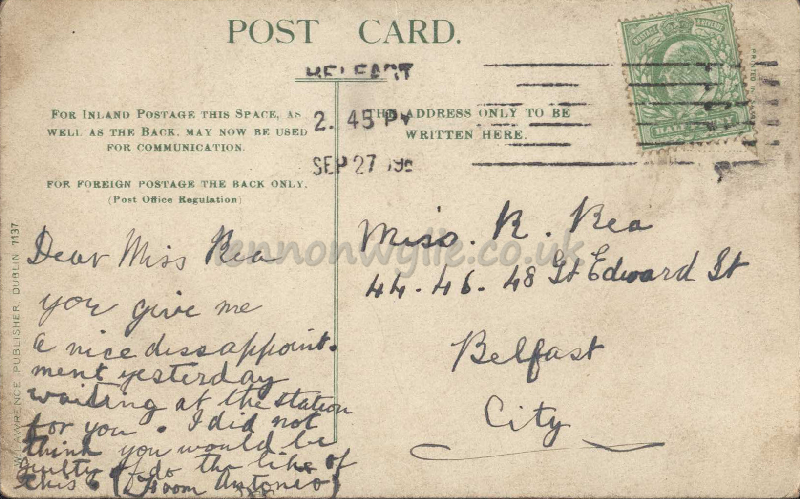 POST CARD.
BELFAST
2. 45 PM
SEP 27 190
FOR INLAND POSTAGE THIS SPACE, AS
WELL AS THE BACK, MAY NOW BE USED
FOR COMMUNICATION.
FOR FOREIGN POSTAGE THE BACK ONLY.
(Post Office Regulation)
THE ADDRESS ONLY TO BE
WRITTEN HERE.
LAWRENCE PUBLISHER, DUBLIN 7137
Dear Miss Rea
you give me
a nice dissappoint-
ment yesterday
waiting at the station
for you. I did not
think you would be
guilty of do the like of
this (From Antoneo)
Miss. R. Rea
44-46-48 Gt Edward St
Belfast
City
lennonwylie.co.uk